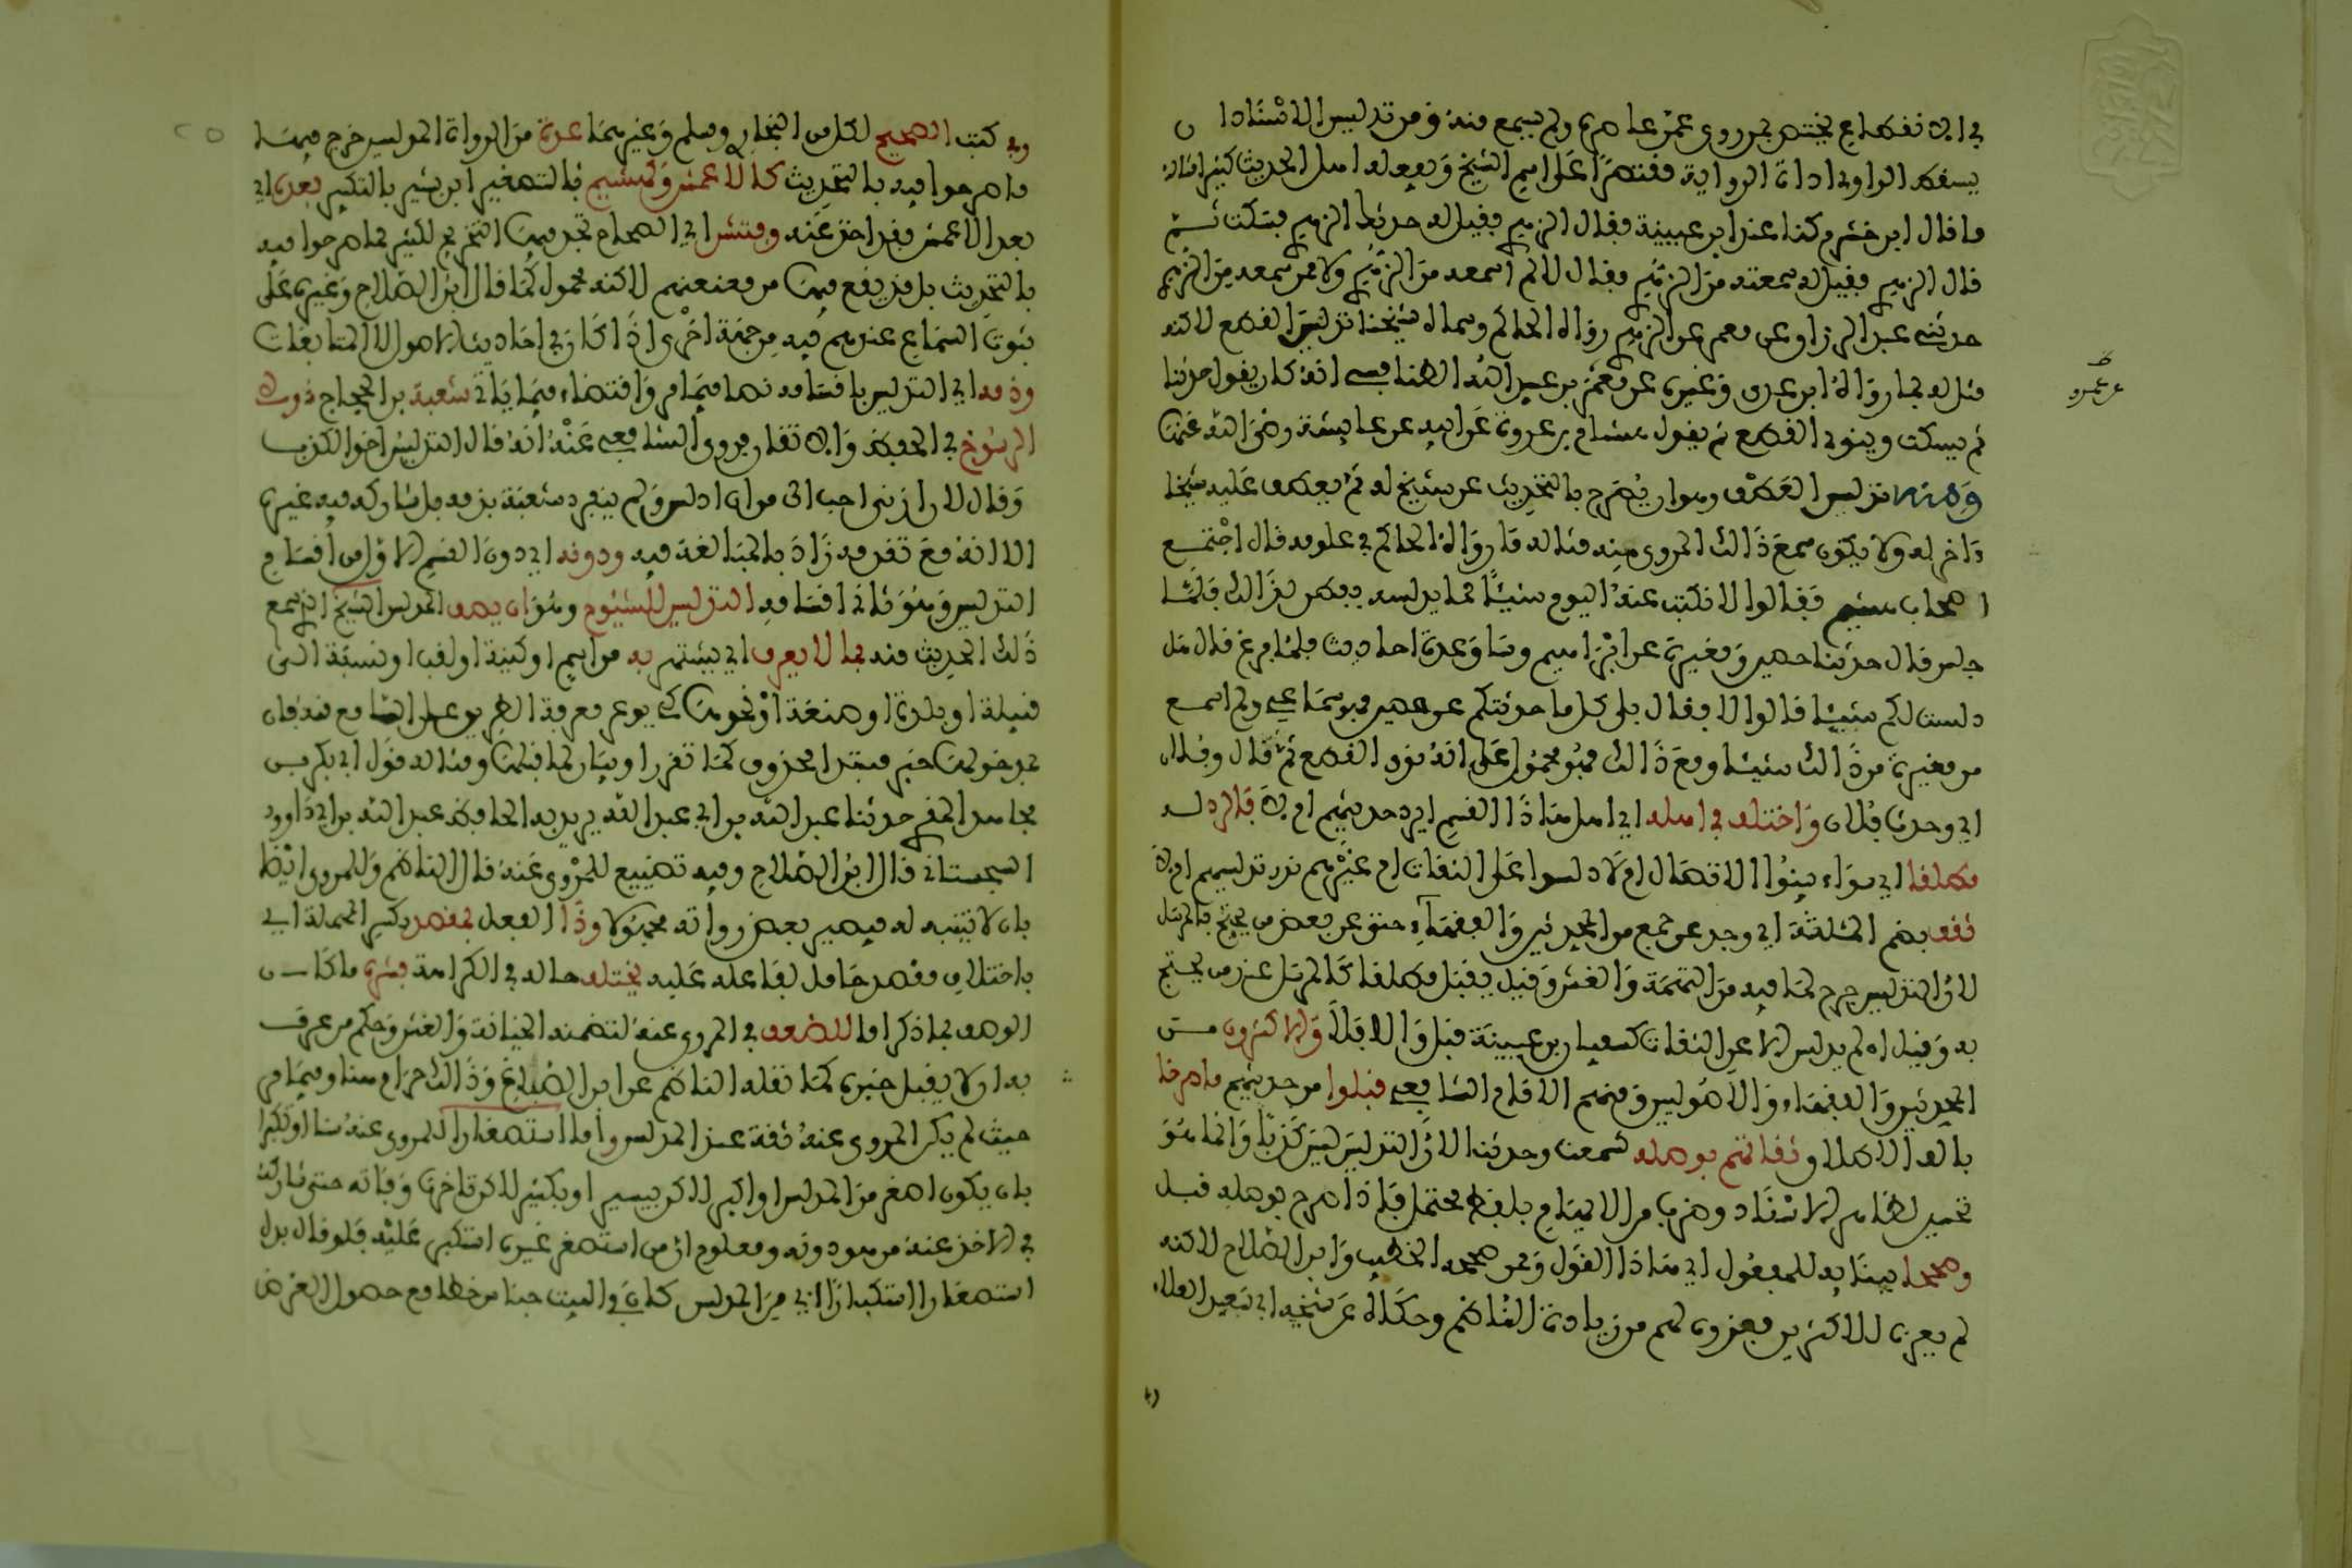 في ان انقطاع يختص بمن روى عمن عاصره ولم يسمع منه ومن تدليس الاسناد ان
يسقط الراوي اداة الرواية مقتصرا على اسم الشيخ ويفعله اهل الحديث كثيرا مثاله
ما قال ابن خشرم كنا عند ابن عيينة فقال الزهري فقيل له حدثك الزهري فسكت ثم
قال الزهري فقيل له سمعته من الزهري فقال لا لم اسمعه من الزهري ولا ممن سمعه من الزهري
حدثني عبد الرزاق عن معمر عن الزهري رواه الحاكم وسماه شيخنا تدليس القطع لاكنه
مثل له بما رواه ابن عدي وغيره عن عمر بن عبيد الله الطنافسي انه كان يقول حدثنا
ثم يسكت وينوي القطع ثم يقول هشام بن عروة عن ابيه عن عايشة رضي الله عنها
ومنه تدليس العطف وهو ان يصرح بالتحديث عن شيخ له ثم يعطف عليه شيخا
ءاخر له ولا يكون سمع ذالك المروي منه مثاله ما رواه الحاكم في علومه قال اجتمع
اصحاب هشيم فقالوا لا نكتب عنه اليوم شيئا مما يدلسه ففطن لذالك فلما
جلس قال حدثنا حصين ومغيرة عن ابراهيم وساق عدة احاديث فلما فرغ قال هل
دلست لكم شيئا قالوا لا فقال بلى كل ما حدثتكم عن حصين فهو سماعي ولم اسمع
من مغيرة من ذالك شيئا ومع ذالك فهو محمول على انه نوى القطع ثم قال وفلان
اي وحدث فلان واختلف في اهله اي اهل هاذا القسم ايرد حديثهم ام لا فالرد له
مطلقا اي سواء بينوا الاتصال ام لا دلسوا على الثقات ام غيرهم ندر تدليسهم ام لا
ثقف بضم المثلثة اي وجد عن جمع من المحدثين والفقهاء حتى عن بعض من يحتج بالمرسل
لان التدليس جرح لما فيه من التهمة والغش وقيل يقبل مطلقا كالمرسل عند من يحتج
به وقيل ان لم يدلس الا عن الثقات كسفيان بن عيينة قبل والا فلا والاكثرون من
المحدثين والفقهاء والاصوليين ومنهم الامام الشافعي قبلوا من حديثهم ما صرحا
بالف الاطلاق ثقاتهم بوصله كسمعت وحدثنا لان التدليس ليس كذبا وانما هو
تحسين لظاهر الاسناد وضرب من الايهام بلفظ محتمل فاذا صرح بوصله قبل
وصححا ببنايه للمفعول اي هاذا القول وممن صححه الخطيب وابن الصلاح لاكنه
لم يعزه للاكثرين فعزوه لهم من زيادة الناظم وحكاه عن شيخه ابي سعيد العلاء
عن عمر
وفي كتب الصحيح لكل من البخاري ومسلم وغيرهما عدة من الرواة المدلسين خرج فيها
ما صرحوا فيه بالتحديث كالاعمش وكهشيم بالتصغير ابن بشير بالتكبير بعده اي
بعد الاعمش فقد اخذ عنه وفتش اي الصحاح تجد فيها التخريج لكثير مما صرحوا فيه
بالتحديث بل قد يقع فيها من معنعنهم لاكنه محمول كما قال ابن الصلاح وغيره على
ثبوت السماع عندهم فيه من جهة اخرى اذا كان في احاديث الاصول لا المتابعات
وذمه اي التدليس باقسامه نصا فيما مر واقتضاء فيما ياتي شعبة بن الحجاج ذو
الرسوخ في الحفظ والاتقان فروى الشافعي عنه انه قال التدليس اخو الكذب
وقال لان ازني احب الي من ان ادلس ولم ينفرد شعبة بذمه بل شاركه فيه غيره
الا انه مع تقدمه زاد بالمبالغة فيه ودونه اي دون القسم الاول من اقسام
التدليس وهو ثاني اقسامه التدليس للشيوخ وهو ان يصف المدلس الشيخ الذي سمع
ذلك الحديث منه بما لا يعرف اي يشتهر به من اسم او كنية او لقب او نسبة الى
قبيلة او بلدة او صنعة او نحوها كي يوعر معرفة الطريق على السامع منه فان
مدخولها خبر مبتدا محذوف كما تقرر او بيان لما قبلها ومثاله قول ابي بكر بن
مجاهد المقرئ حدثنا عبد الله بن ابي عبد الله يريد به الحافظ عبد الله بن ابي داوود
السجستاني قال ابن الصلاح وفيه تضييع للمروي عنه قال الناظم وللمروي ايضا
بان لا يتنبه له فيصير بعض رواته مجهولا وذا الفعل بمقصد بكسر المهملة اي
باختلاف مقصد حامل لفاعله عليه يختلف حاله في الكراهة فشره ما كان
الوصف بما ذكر اما للضعف في المروي عنه لتضمنه الخيانة والغش وحكم من عرف
به ان لا يقبل خبره كما نقله الناظم عن ابن الصباغ وذالك حرام هنا وفيما مر
حيث لم يكن المروي عنه ثقة عند المدلس واما استصغارا للمروي عنه سنا او كبرا
بان يكون اصغر من المدلس او اكبر لاكن بيسير او بكثير لاكن تاخرت وفاته حتى شاركه
في الاخذ عنه من هو دونه ومعلوم ان من استصغر غيره استكبر عليه فلو قال بدل
استصغارا استكبارا اي من المدلس كان والبيت جناس خط مع حصول الغرض